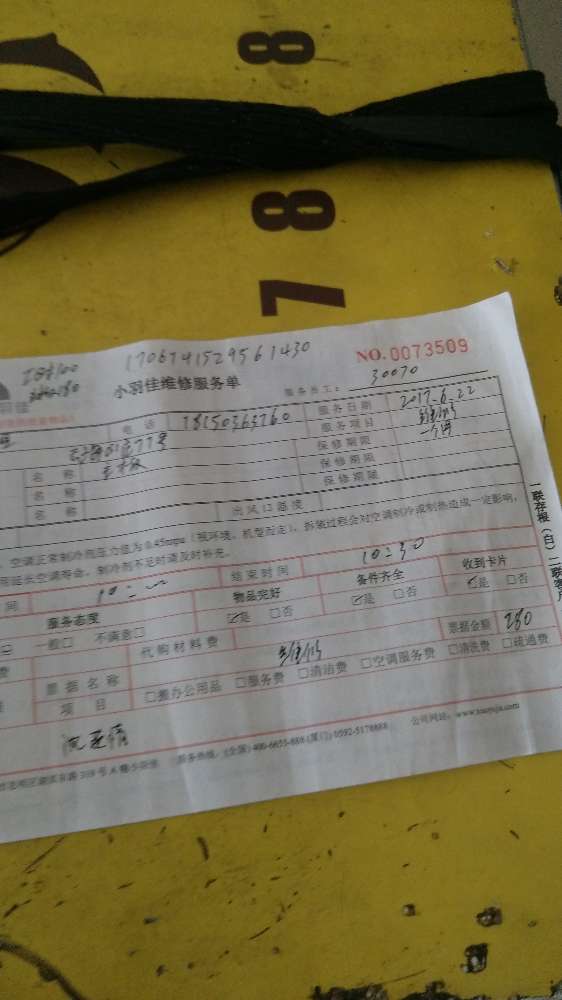 8
8
7
170674152956 1430
NO.0073509
小羽佳维修服务单
服务员工： 30070
电话 18150363760 服务日期 2017.6.22
服务项目 维修
名 称 主板 保修期限 一个月
名 称 保修期限
名 称 保修期限
出风口温度
空调正常制冷剂压力值为0.45mpa（视环境、机型而定）。拆装过程会对空调制冷或制热造成一定影响，
延长空调寿命，制冷剂不足时请及时补充。
结束时间 10:30
服务态度 物品完好 备件齐全 收到卡片
一般□ 不满意□ ☑是 □否 ☑是 □否 ☑是 □否
代购材料费 维修 票据金额 280
票据名称
项 目 □搬办公用品 □服务费 □清洁费 □空调服务费 □清洗费 □疏通费
服务热线：(全国) 400-6655-888 (厦门) 0592-5178888 公司网址：www.xiaoyujia.com
一联存根（白）二联客户